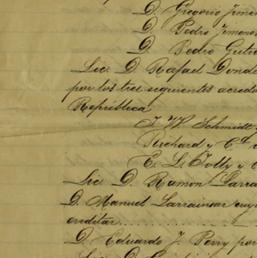 D. Gregorio Jimen
D. Pedro Jimene
D. Pedro Gutie
Lic. D. Rafael Donde
por los tres siguientes acreed
República.
J. W. Schmidt
Perchard y Cª
E. L. Tolly y C
Lic. D. Ramon Larra
D. Manuel Larrainzar
D. Eduardo J. Perry por